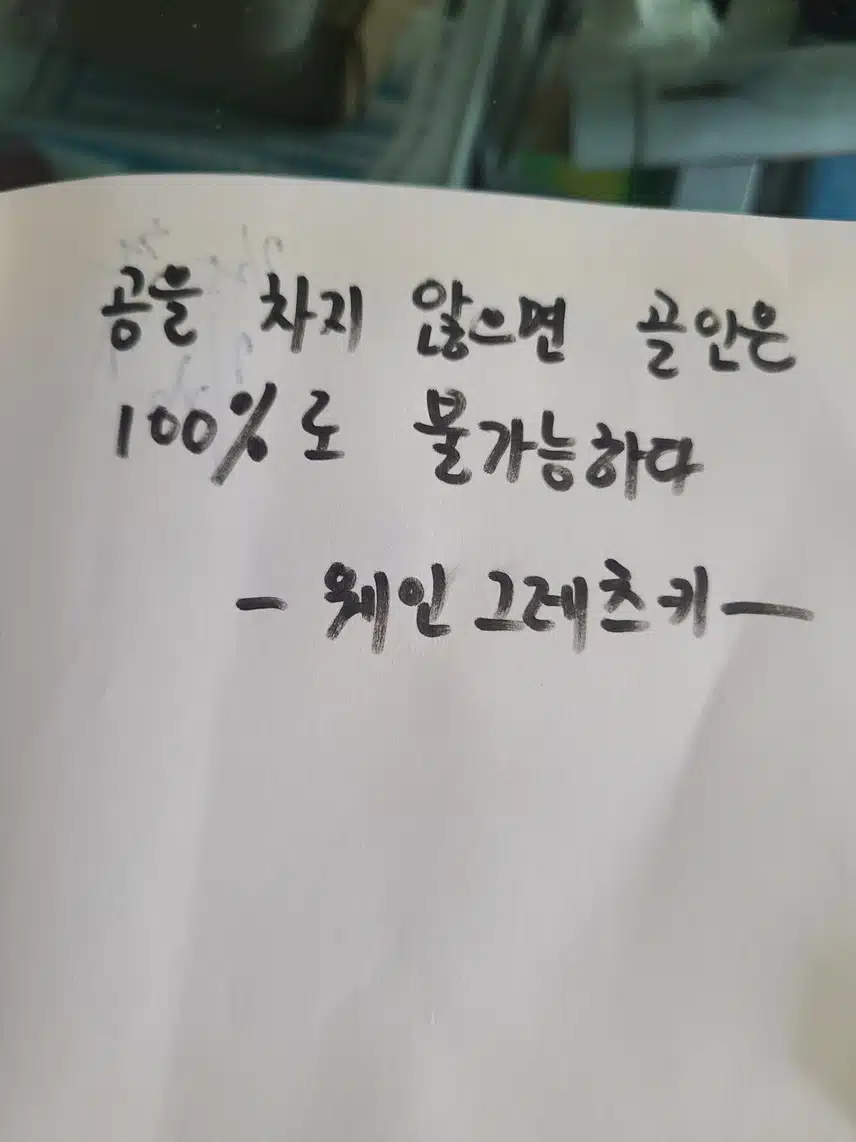 공을 차지 않으면 골인은
100%로 불가능하다
- 웨인그레츠키-